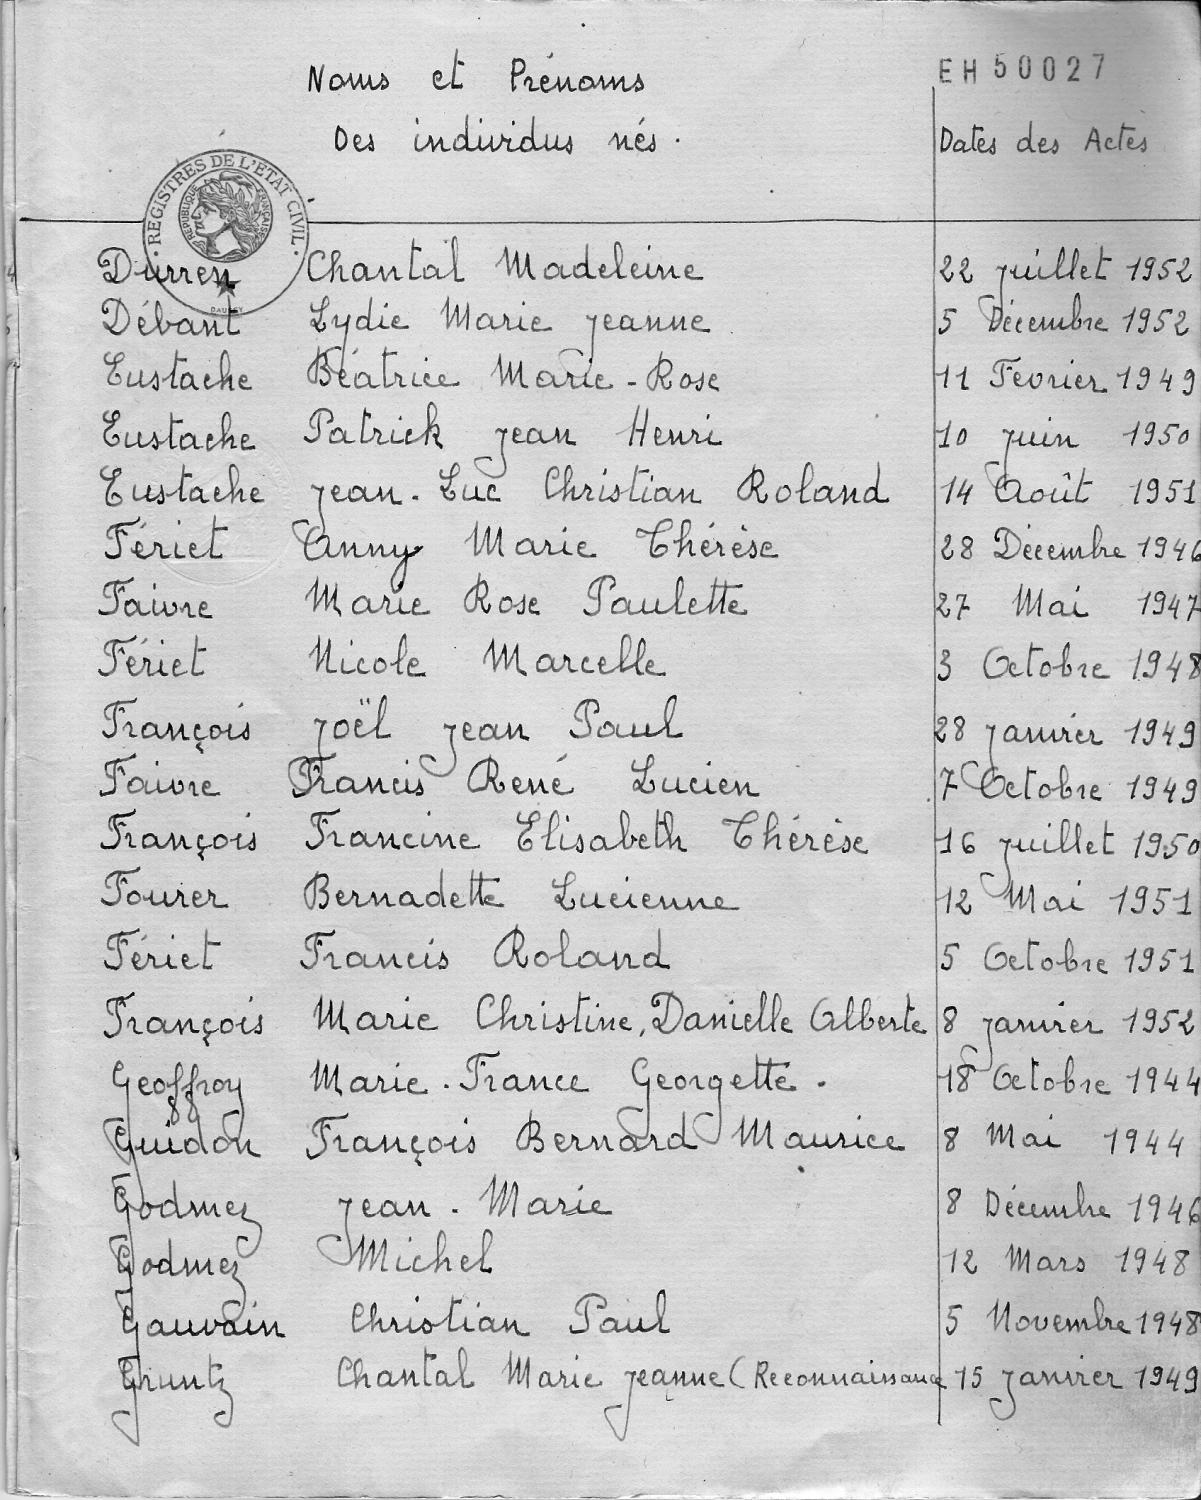 EH 50027
Noms et Prénoms
Des individus nés.
Dates des Actes
REGISTRES DE L'ETAT CIVIL
REPUBLIQUE FRANCAISE
Durren Chantal Madeleine 22 juillet 1952
Débant Lydie Marie jeanne 5 Décembre 1952
Eustache Béatrice Marie-Rose 11 Février 1949
Eustache Patrick jean Henri 10 juin 1950
Eustache jean-Luc Christian Roland 14 Août 1951
Fériet Anny Marie Thérèse 28 Décembre 1946
Faivre Marie Rose Paulette 27 Mai 1947
Fériet Nicole Marcelle 3 Octobre 1948
François joël jean Paul 28 janvier 1949
Faivre Francis René Lucien 7 Octobre 1949
François Francine Elisabeth Thérèse 16 juillet 1950
Fourer Bernadette Lucienne 12 Mai 1951
Fériet Francis Roland 5 Octobre 1951
François Marie Christine, Danielle Alberte 8 janvier 1952
Geoffroy Marie-France Georgette. 18 Octobre 1944
Guidon François Bernard Maurice 8 Mai 1944
Godmez jean-Marie 8 Décembre 1946
Godmez Michel 12 Mars 1948
Gauvain Christian Paul 5 Novembre 1948
Gruntz Chantal Marie jeanne (Reconnaissance 15 janvier 1949